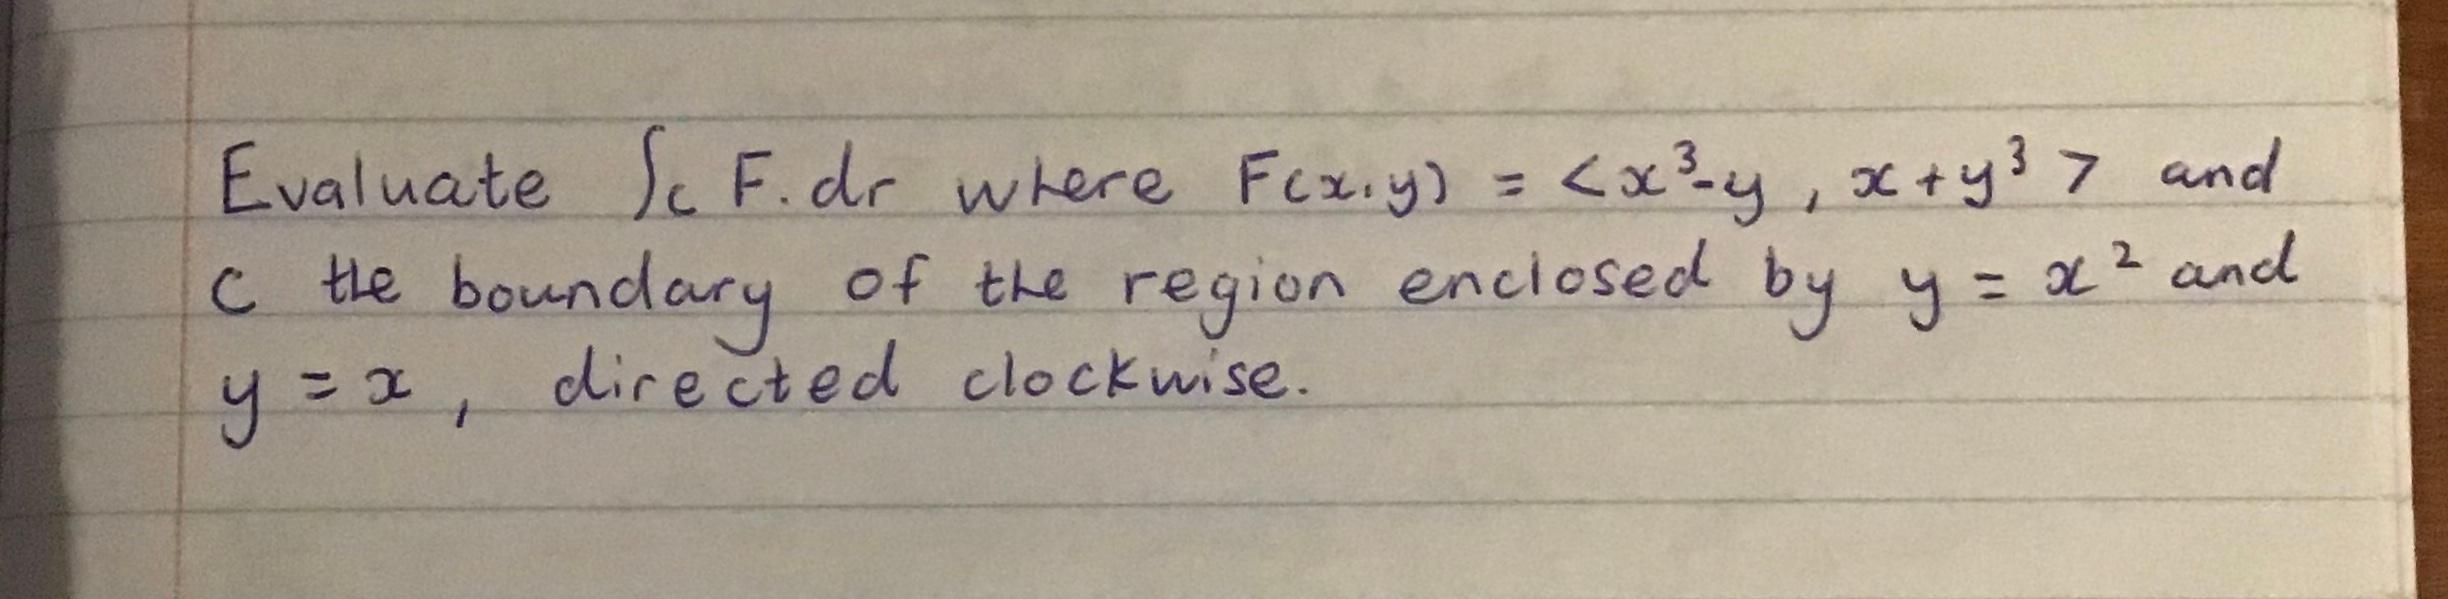 Evaluate ∫c F.dr where F(x,y) = <x³-y, x+y³> and
c the boundary of the region enclosed by y = x² and
y = x, directed clockwise.